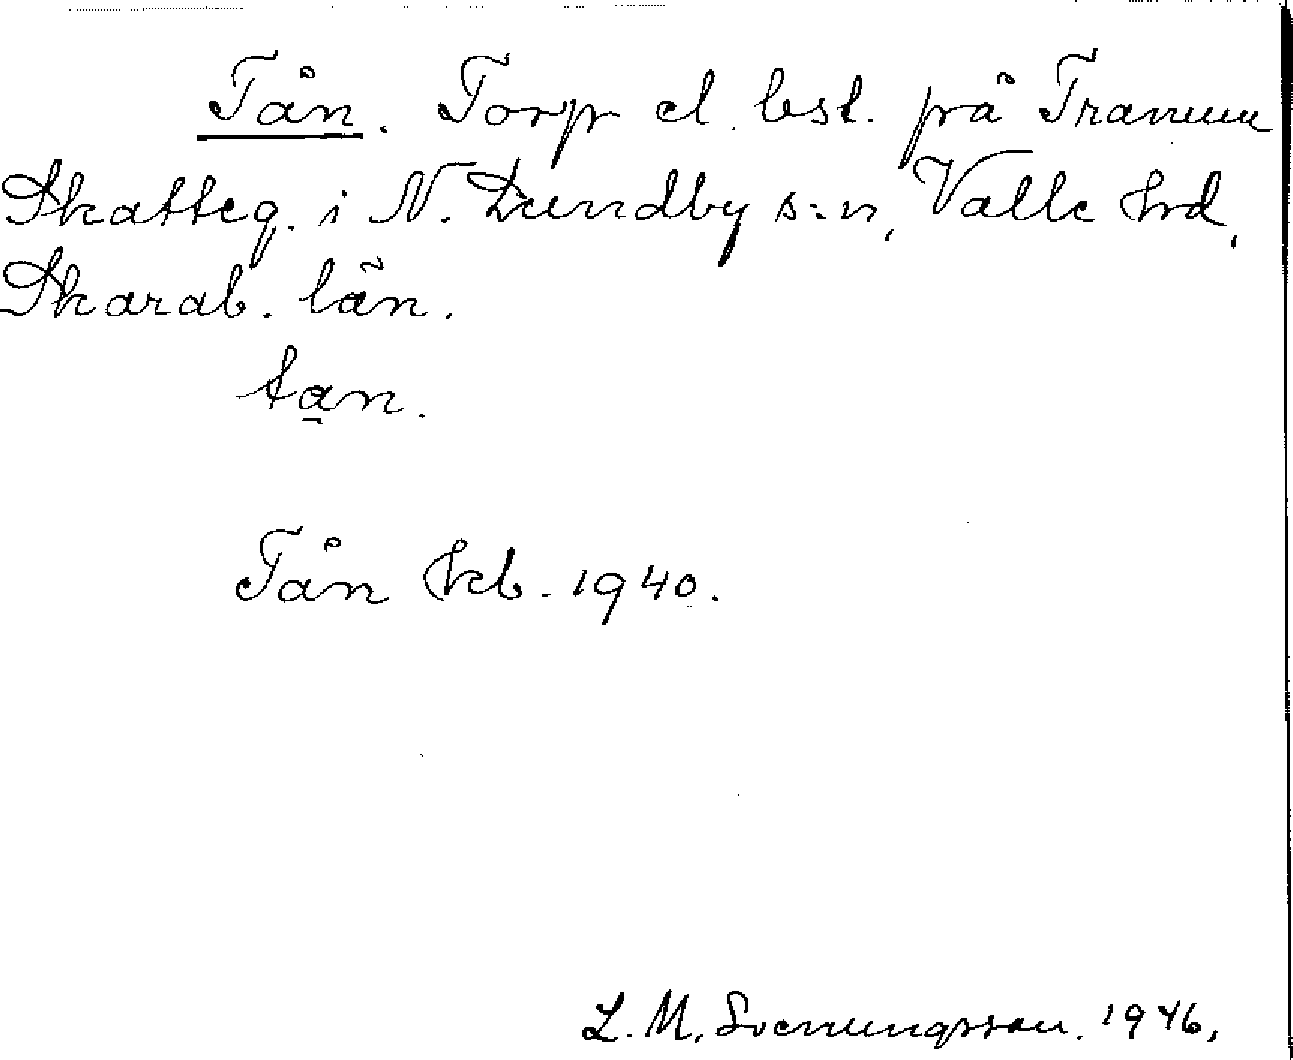 Tån. Torp el. lst. på Tranum
Skatteg. i N. Lundby s:n, Valle hrd,
Skarab. län.
ta̱n.
Tån hcb. 1940.
L. M. Svenungsson. 1946.